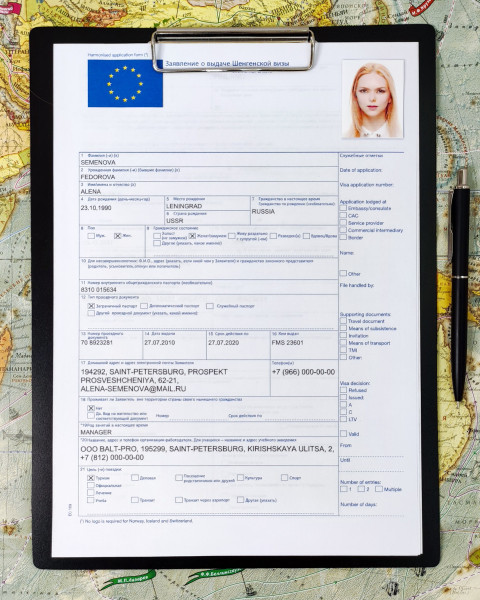 Harmonised application form (¹)
Заявление о выдаче Шенгенской визы
1 Фамилия (-и) (x)
SEMENOVA
2 Урожденная фамилия (-и) (бывшая фамилия) (x)
FEDOROVA
3 Имя/имена и отчество (x)
ALENA
4 Дата рождения (день-месяц-год)
23.10.1990
5 Место рождения
LENINGRAD
6 Страна рождения
USSR
7 Гражданство в настоящее время
Гражданство по рождению (необязательно):
RUSSIA
8 Пол
Муж. Жен.
9 Гражданское состояние
Холост
(не замужем)
Женат/замужем
Живу раздельно
с супругой (-ом)
Разведен(а)
Вдовец/Вдова
Другое (указать, какое именно)
11 Номер внутреннего общегражданского паспорта (необязательно):
8310 015634
12 Тип проездного документа
Заграничный паспорт Дипломатический паспорт Служебный паспорт
Другой проездной документ (указать, какой именно)
13 Номер проездного
документа
70 8923281
14 Дата выдачи
27.07.2010
15 Срок действия по
27.07.2020
16 Кем выдан
FMS 23601
17 Домашний адрес и адрес электронной почты Заявителя
194292, SAINT-PETERSBURG, PROSPEKT
PROSVESHCHENIYA, 62-21,
ALENA-SEMENOVA@MAIL.RU
Телефон(ы)
+7 (966) 000-00-00
18 Проживает ли Заявитель вне территории страны своего нынешнего гражданства
Нет
Да. Вид на жительство или
соответствующий документ Номер Срок действия по
*19 Род занятий в настоящее время
MANAGER
*20 Название, адрес и телефон организации-работодателя. Для учащихся – название и адрес учебного заведения
OOO BALT-PRO, 195299, SAINT-PETERSBURG, KIRISHSKAYA ULITSA, 2,
+7 (812) 000-00-00
21 Цель (-и) поездки
Туризм Деловая Посещение
родственников или друзей Культура Спорт
Официальная
Лечение
Учеба Транзит Транзит через аэропорт Другая (указать)
(¹) No logo is required for Norway, Iceland and Switzerland.
Служебные отметки
Date of application:
Visa application number:
Application lodged at
Embassy/consulate
CAC
Service provider
Commercial intermediary
Border
Name:
Other
File handled by:
Supporting documents:
Travel document
Means of subsistence
Invitation
Means of transport
TMI
Other:
Visa decision:
Refused
Issued:
A
C
LTV
Valid
From
Until
Number of entries:
1 2 Multiple
Number of days: